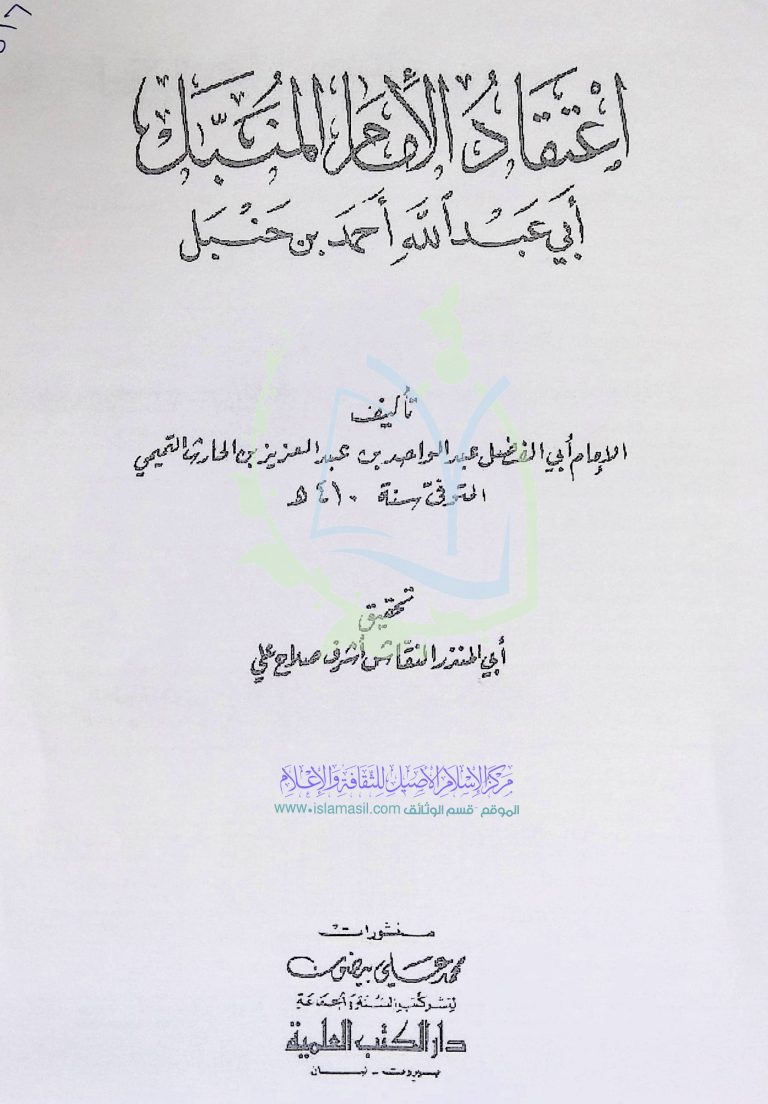 اعْتِقَادُ الأِمَامِ المُنَبَّلِ
أَبِي عَبْدِ اللَّهِ أَحْمَدَ بن حَنْبَل
تأليف
الإمام أبي الفضل عبد الواحد بن عبد العزيز بن الحارث التميمي
المتوفّى سنة ٤١٠ هـ
تحقيق
أبي المنذر النقّاش أشرف صلاح علي
مركز الإسلام الأصيل للثقافة والإعلام
الموقع - قسم الوثائق www.islamasil.com
منشورات
محمد علي بيضون
لنشر كتب السنة والجماعة
دار الكتب العلمية
بيروت - لبنان